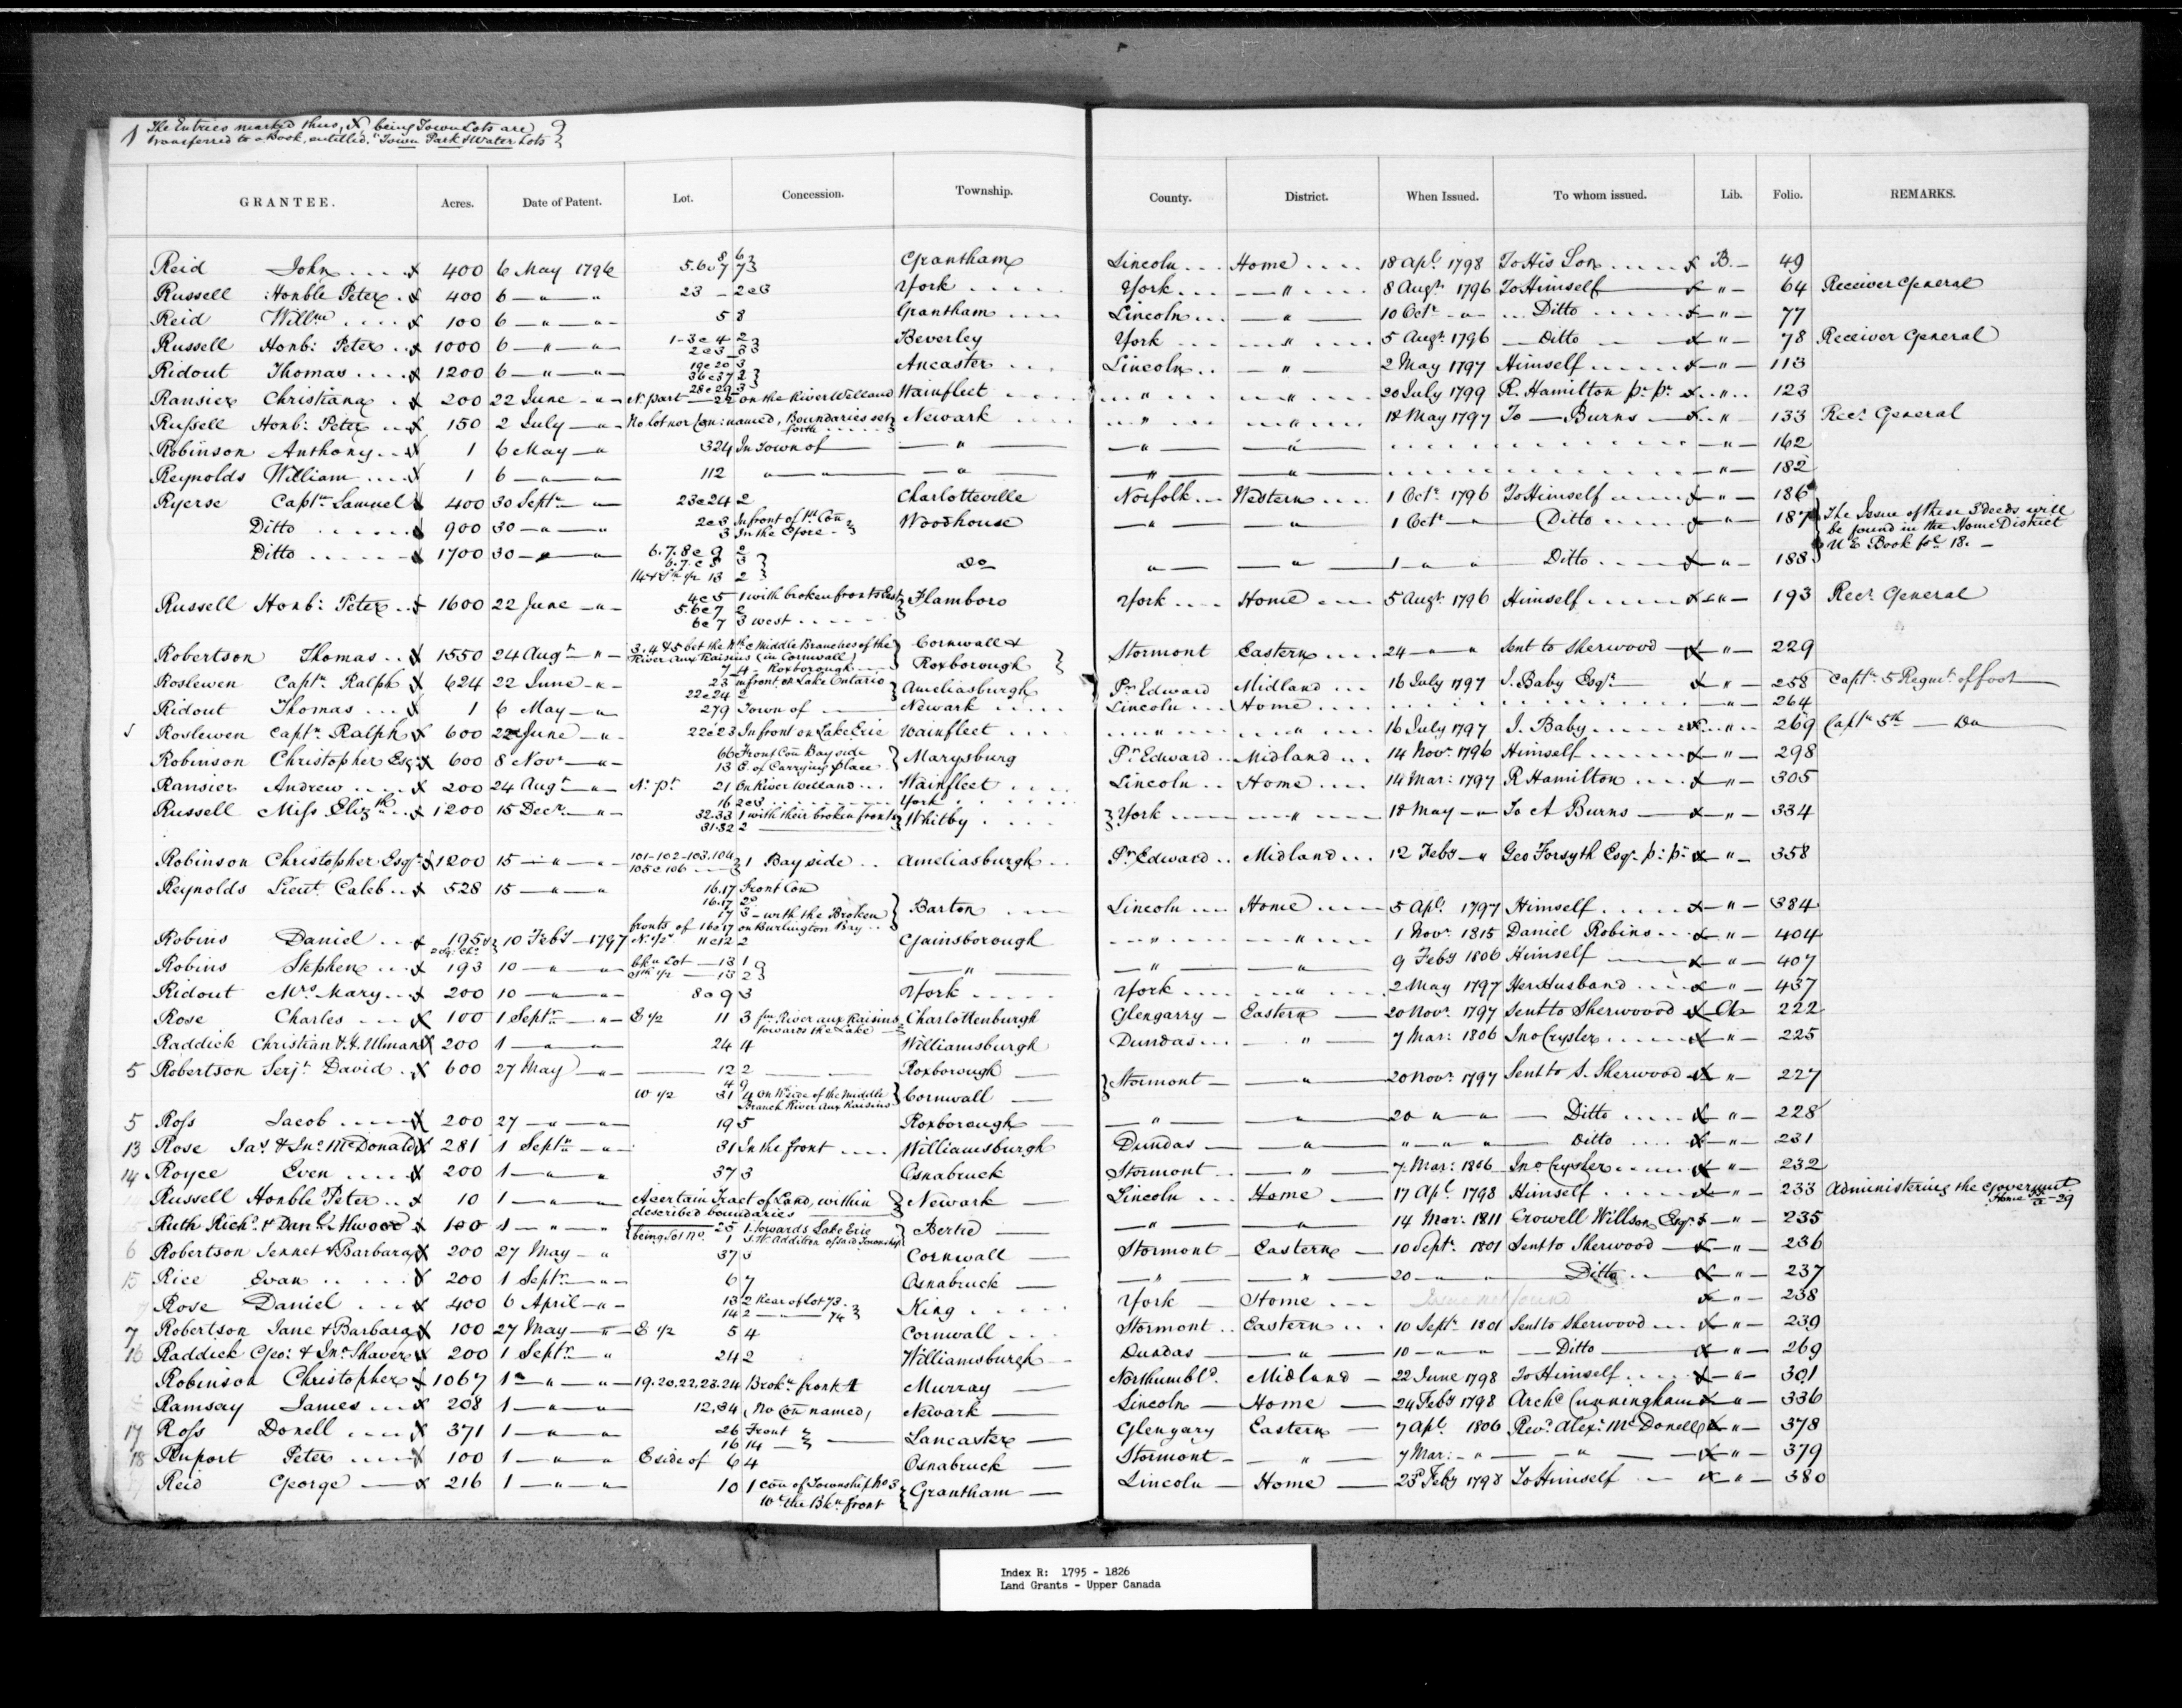 The Entries marked thus, X, being Town Lots are
transferred to a Book, entitled, "Town Park & Water Lots
GRANTEE. Acres. Date of Patent. Lot. Concession. Township. County. District. When Issued. To whom issued. Lib. Folio. REMARKS.
Reid John 400 6 May 1796 5.6 & 7 8 6 7 Grantham Lincoln Home 18 Apl. 1798 To His Son B. 49
Russell Honble Peter 400 6 " " 23 2 & 3 York York " 8 Augt. 1796 To Himself " 64 Receiver General
Reid Willm 100 6 " " 5 8 Grantham Lincoln " 10 Octr " Ditto " 77
Russell Honb: Peter 1000 6 " " 1-3 & 4 2 2 & 3 3 Beverley York " 5 Augt. 1796 Ditto " 78 Receiver General
Ridout Thomas 1200 6 " " 19 & 20 3 36 & 37 2 28 & 29 3 Ancaster Lincoln " 2 May 1797 Himself " 113
Ransier Christiana 200 22 June " N. part 22 on the River Welland Wainfleet " " 20 July 1799 R. Hamilton pr. pr. " 123
Russell Honb: Peter 150 2 July " No lot nor Con: named, Boundaries set forth Newark " " 18 May 1797 To — Burns " 133 Recr. General
Robinson Anthony 1 6 May " 324 In Town of " " " " 162
Reynolds William 1 6 " " 112 " " " " " " 182
Ryerse Captn Samuel 400 30 Septr " 23 & 24 2 Charlotteville Norfolk Western 1 Octr 1796 To Himself " 186
Ditto 900 30 " " 2 & 3 In front of 1st Con 3 In the Woodhouse " " 1 Octr " Ditto " 187 The Issue of these 3 deeds will
be found in the Home District
U E Book fol 18.
Ditto 1700 30 " " 6.7.8 & 9 2 6.7. & 8 3 14 & Sth 1/2 13 2 Do " " 1 " " Ditto " 188
Russell Honb: Peter 1600 22 June " 4 & 5 1 with broken fronts East 5.6 & 7 2 6 & 7 3 west Flamboro York Home 5 Augt. 1796 Himself " 193 Recr. General
Robertson Thomas 1550 24 Augt " 3. 4 & 5 bet the Nth & Middle Branches of the River Aux Raisins (in Cornwall) 7 4 Roxborough Cornwall & Roxborough Stormont Eastern 24 " " Sent to Sherwood " 229
Roslewen Captn Ralph 624 22 June " 23 in front, on Lake Ontario 22 & 24 2 Ameliasburgh Pr. Edward Midland 16 July 1797 J. Baby Esqr " 258 Captn 5 Regmt. of foot
Ridout Thomas 1 6 May " 279 Town of Newark Lincoln Home " 264
Roslewen Captn. Ralph 600 22 June " 22 & 23 In front on Lake Erie Wainfleet " " 16 July 1797 J. Baby " 269 Captn 5th — Do
Robinson Christopher Esqr 600 8 Novr " 66 Front Con Bay side 13 E. of Carrying place Marysburg Pr. Edward Midland 14 Novr. 1796 Himself " 298
Ransier Andrew 200 24 Augt " N. pt. 21 On River Welland Wainfleet Lincoln Home 14 Mar: 1797 R Hamilton " 305
Russell Miss Elizth 1200 15 Decr " 16 2 & 3 York 32.33 1 with their broken fronts 31.32 2 Whitby York " 18 May " To A Burns " 334
Robinson Christopher Esqr 1200 15 " " 101-102-103.104 105 & 106 1 Bay side Ameliasburgh Pr. Edward Midland 12 Feby " Geo Forsyth Esqr. p: p: " 358
Reynolds Lieut. Caleb 528 15 " " 16.17 Front Con 16.17 2 17 3 - with the Broken fronts of 16 & 17 on Burlington Bay Barton Lincoln Home 5 Apl. 1797 Himself " 384
Robins Daniel 195 10 Feby 1797 N. 1/2 11 & 12 2 Gainsborough " " 1 Novr. 1815 Daniel Robins " 404
Robins Stephen 193 10 " " bkn Lot 13 1 Sth 1/2 13 2 " " " 9 Feby 1806 Himself " 407
Ridout Mrs Mary 200 10 " " 8 & 9 3 York York " 2 May 1797 Her Husband " 437
Rose Charles 100 1 Septr " E 1/2 11 3 fm River aux Raisins towards the Lake Charlottenburgh Glengarry Eastern 20 Novr. 1797 Sent to Sherwood 222
Raddick Christian & H. Ulman 200 1 " " 24 4 Williamsburgh Dundas " 7 Mar: 1806 Jno Crysler " 225
5 Robertson Serjt David 600 27 May " 12 2 Roxborough 4 9 W 1/2 31 4 on N side of the Middle Branch River Aux Raisins Cornwall Stormont " 20 Novr. 1797 Sent to S. Sherwood " 227
5 Ross Jacob 200 27 " " 19 5 Roxborough " " 20 " " Ditto " 228
13 Rose Jas. & Jno. McDonald 281 1 Septr " 31 In the front Williamsburgh Dundas " " " " Ditto " 231
14 Royce Even 200 1 " " 37 3 Osnabruck Stormont " 7. Mar: 1806 Jno Crysler " 232
Russell Honble Peter 10 1 " " A certain Tract of Land, within described boundaries Newark Lincoln Home 17 Apl. 1798 Himself " 233 Administering the Government
Ruth Richd. & Danl. 100 1 " " 25 1. towards Lake Erie being Lot No. 1 S.W. Addition of said Township Bertie " " 14 Mar: 1811 Crowell Willson Esqr " 235
6 Robertson Jennet & Barbara 200 27 May " 37 3 Cornwall Stormont Eastern 10 Septr. 1801 Sent to Sherwood " 236
15 Rice Evan 200 1 Septr " 6 7 Osnabruck " " 20 " " Ditto " 237
Rose Daniel 400 6 April " 13 2 Rear of Lot 73. 14 2 " 74 King York Home Issue not found " 238
7 Robertson Jane & Barbara 100 27 May " E 1/2 5 4 Cornwall Stormont Eastern 10 Septr. 1801 Sent to Sherwood " 239
16 Raddick Geo: & Jno. Shaver 200 1 Septr " 24 2 Williamsburgh Dundas " 10 " " Ditto " 269
Robinson Christopher 1067 1 " " 19.20.22.23.24 Brokn. front & 1 Murray Northumbld. Midland 22 June 1798 To Himself " 301
Ramsay James 208 1 " " 12.34 No Con named, Newark Lincoln Home 24 Feby 1798 Archd Cunningham " 336
17 Ross Donell 371 1 " " 26 Front 16 14 Lancaster Glengary Eastern 7 Apl. 1806 Revd. Alexr. McDonell " 378
18 Ruport Peter 100 1 " " E side of 6 4 Osnabruck Stormont " 7 Mar: " " " 379
Reid George 216 1 " " 10 1 con of Township No 3 W the Bkn. front Grantham Lincoln Home 23 Feby 1798 To Himself " 380
Index R: 1795 - 1826
Land Grants - Upper Canada